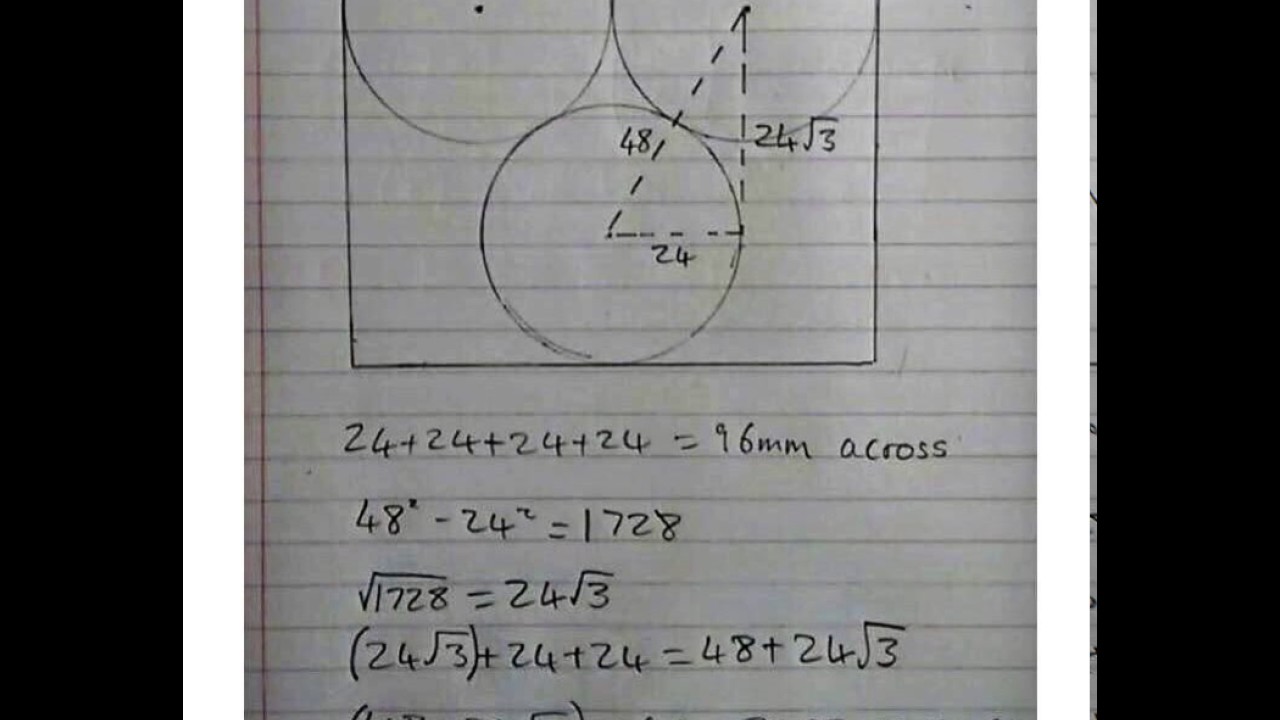 48
24√3
24
24+24+24+24 = 96mm across
48² - 24² = 1728
√1728 = 24√3
(24√3)+24+24 = 48+24√3